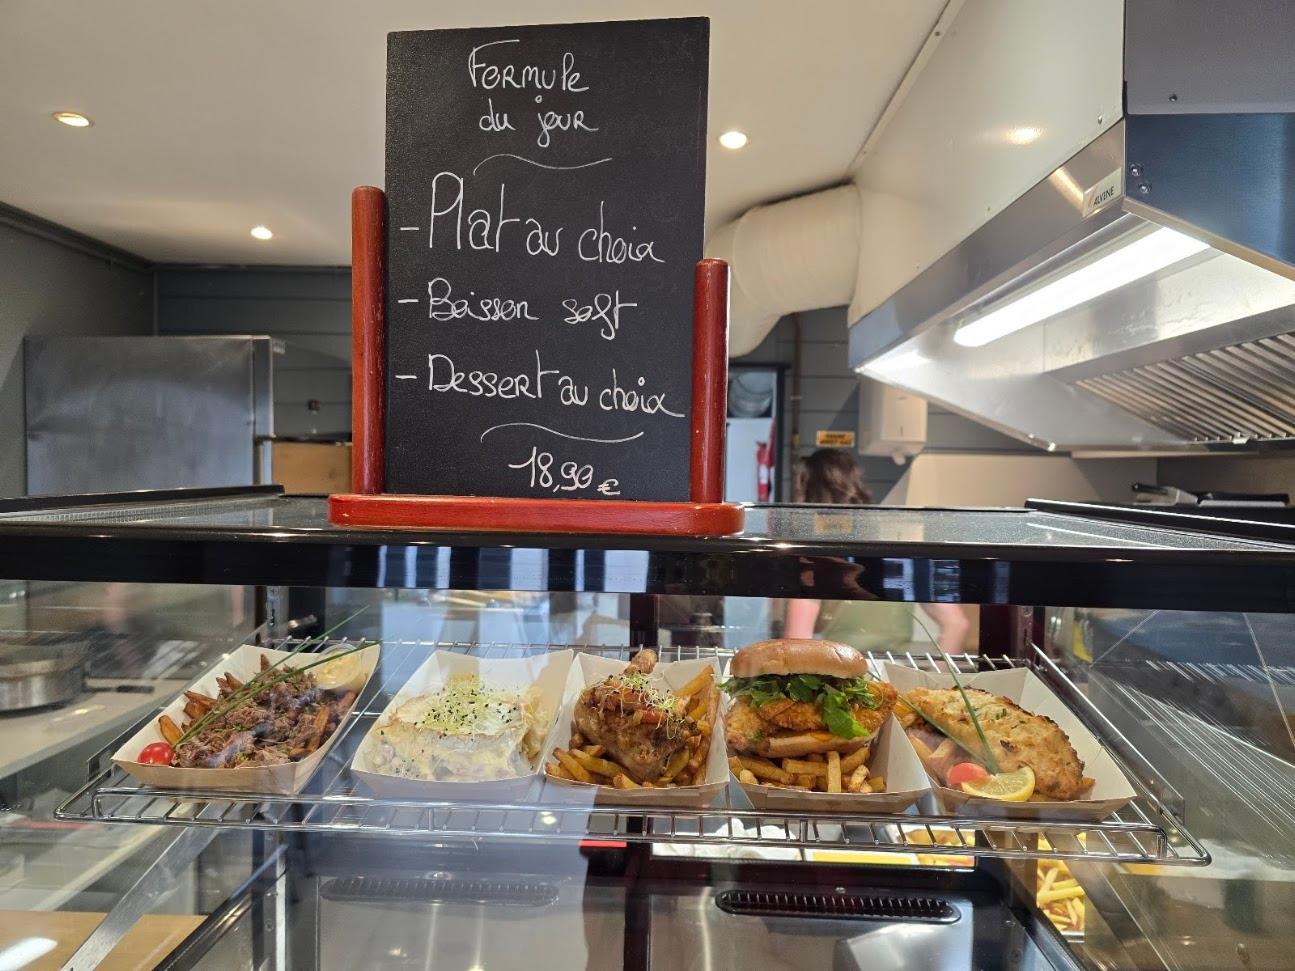 Formule
du jour
- Plat au choix
- Boisson soft
- Dessert au choix
18,90 €
ALVENE